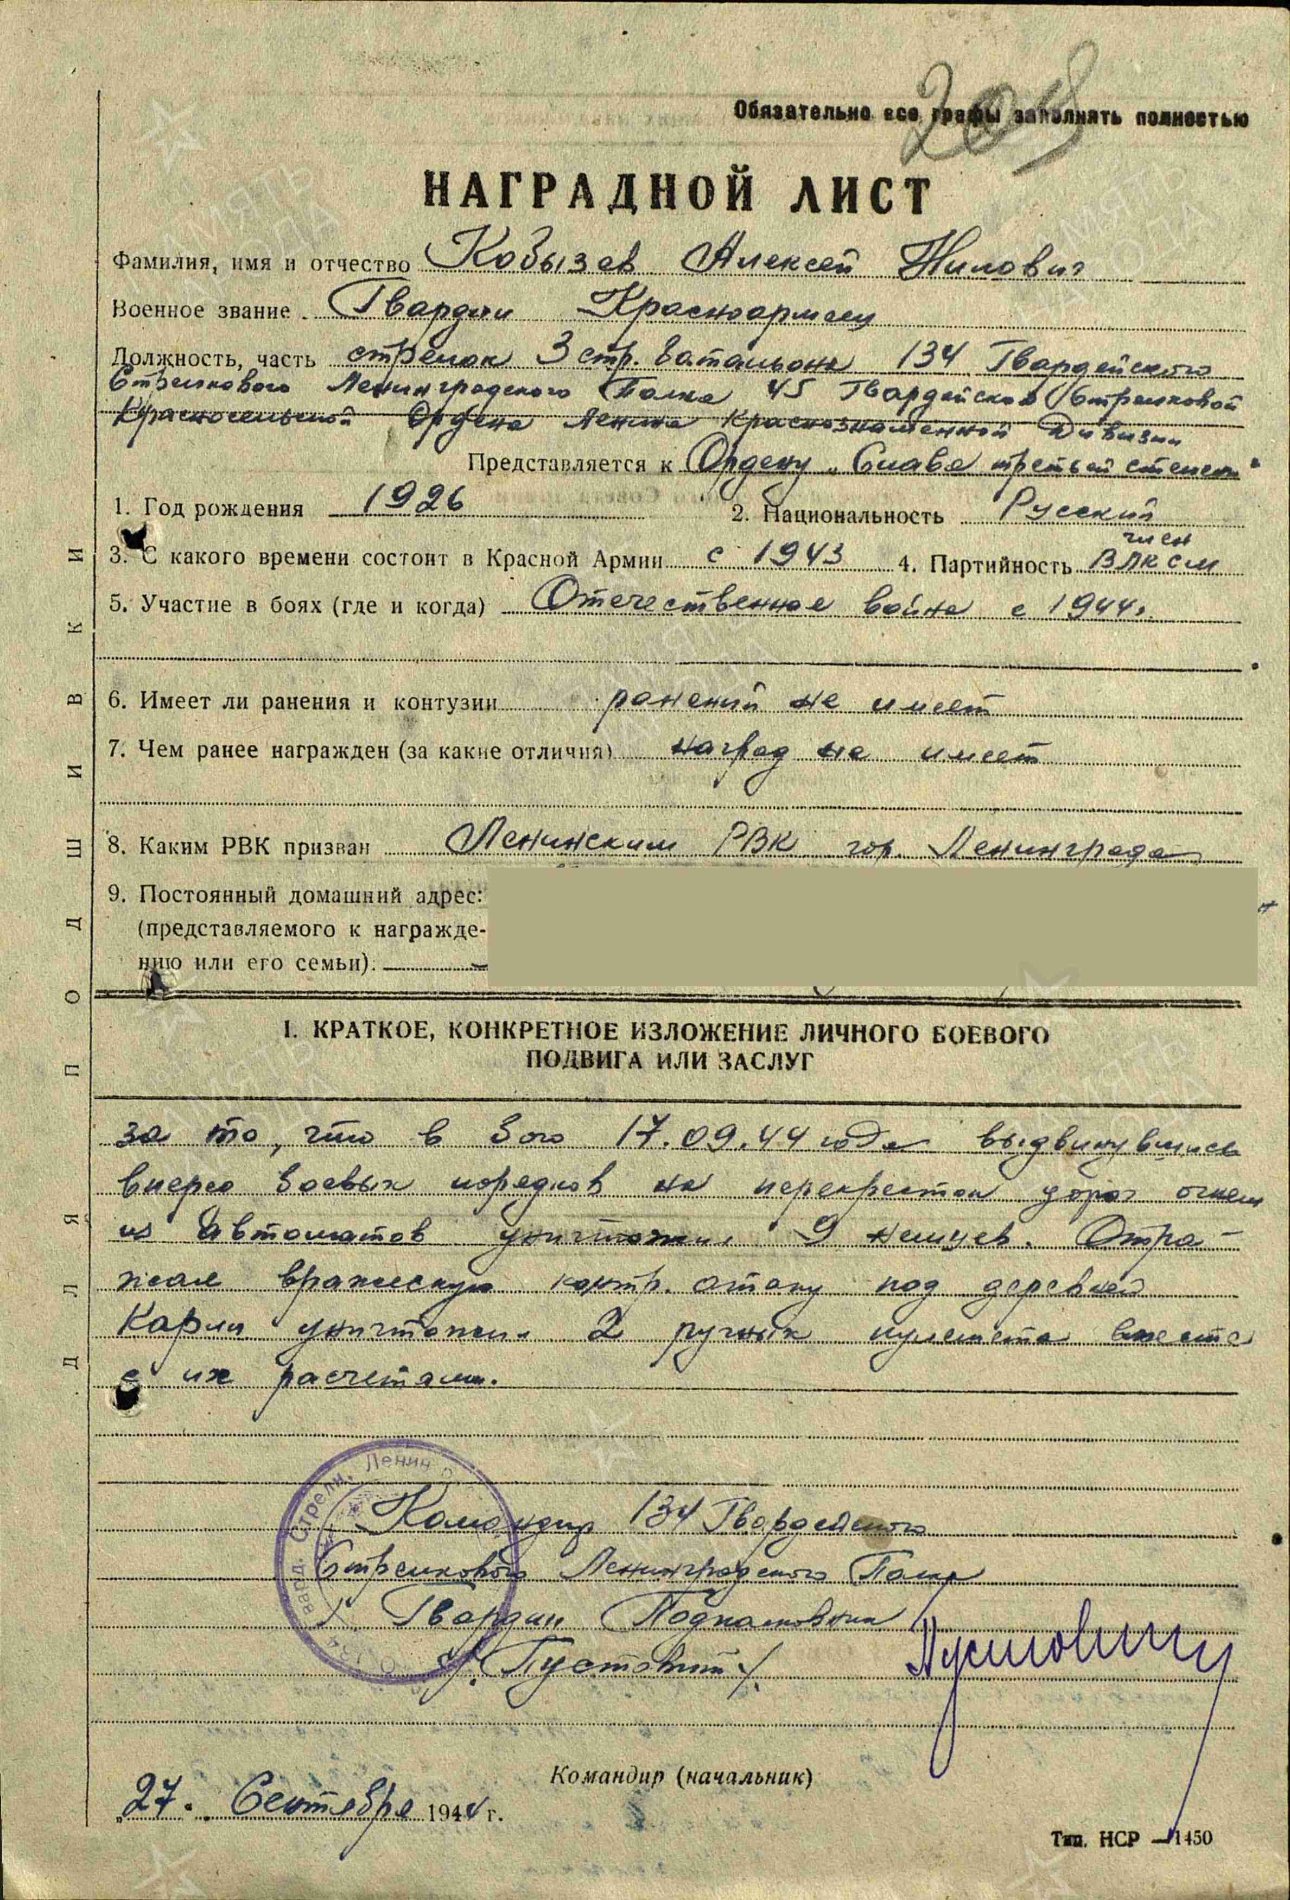 208
Обязательно все графы заполнять полностью
НАГРАДНОЙ ЛИСТ
Фамилия, имя и отчество Кобызев Алексей Нилович
Военное звание Гвардии Красноармеец
Должность, часть стрелок 3 стр. батальона 134 Гвардейского
Стрелкового Ленинградского Полка 45 Гвардейской Стрелковой
Красносельской Ордена Ленина Краснознаменной Дивизии
Представляется к Ордену „Слава третьей степени"
1. Год рождения 1926 2. Национальность Русский
3. С какого времени состоит в Красной Армии с 1943 4. Партийность член ВЛКСМ
5. Участие в боях (где и когда) Отечественная война с 1944г.
6. Имеет ли ранения и контузии ранений не имеет
7. Чем ранее награжден (за какие отличия) наград не имеет
8. Каким РВК призван Ленинским РВК гор. Ленинграда
9. Постоянный домашний адрес:
(представляемого к награжде-
нию или его семьи).
I. КРАТКОЕ, КОНКРЕТНОЕ ИЗЛОЖЕНИЕ ЛИЧНОГО БОЕВОГО
ПОДВИГА ИЛИ ЗАСЛУГ
за то, что в бою 17.09.44 года выдвинувшись
вперед боевых порядков на перекресток дорог огнем
из автоматов уничтожил 9 немцев. Отра-
жая вражескую контр. атаку под деревней
Карли уничтожил 2 ручных пулемета вместе
с их расчетами.
Командир 134 Гвардейского
Стрелкового Ленинградского Полка
Гвардии Подполковник
/Пустовит/
Командир (начальник)
„27" Сентября 1944 г.
Тип. НСР — 1450
ДЛЯ ПОДШИВКИ